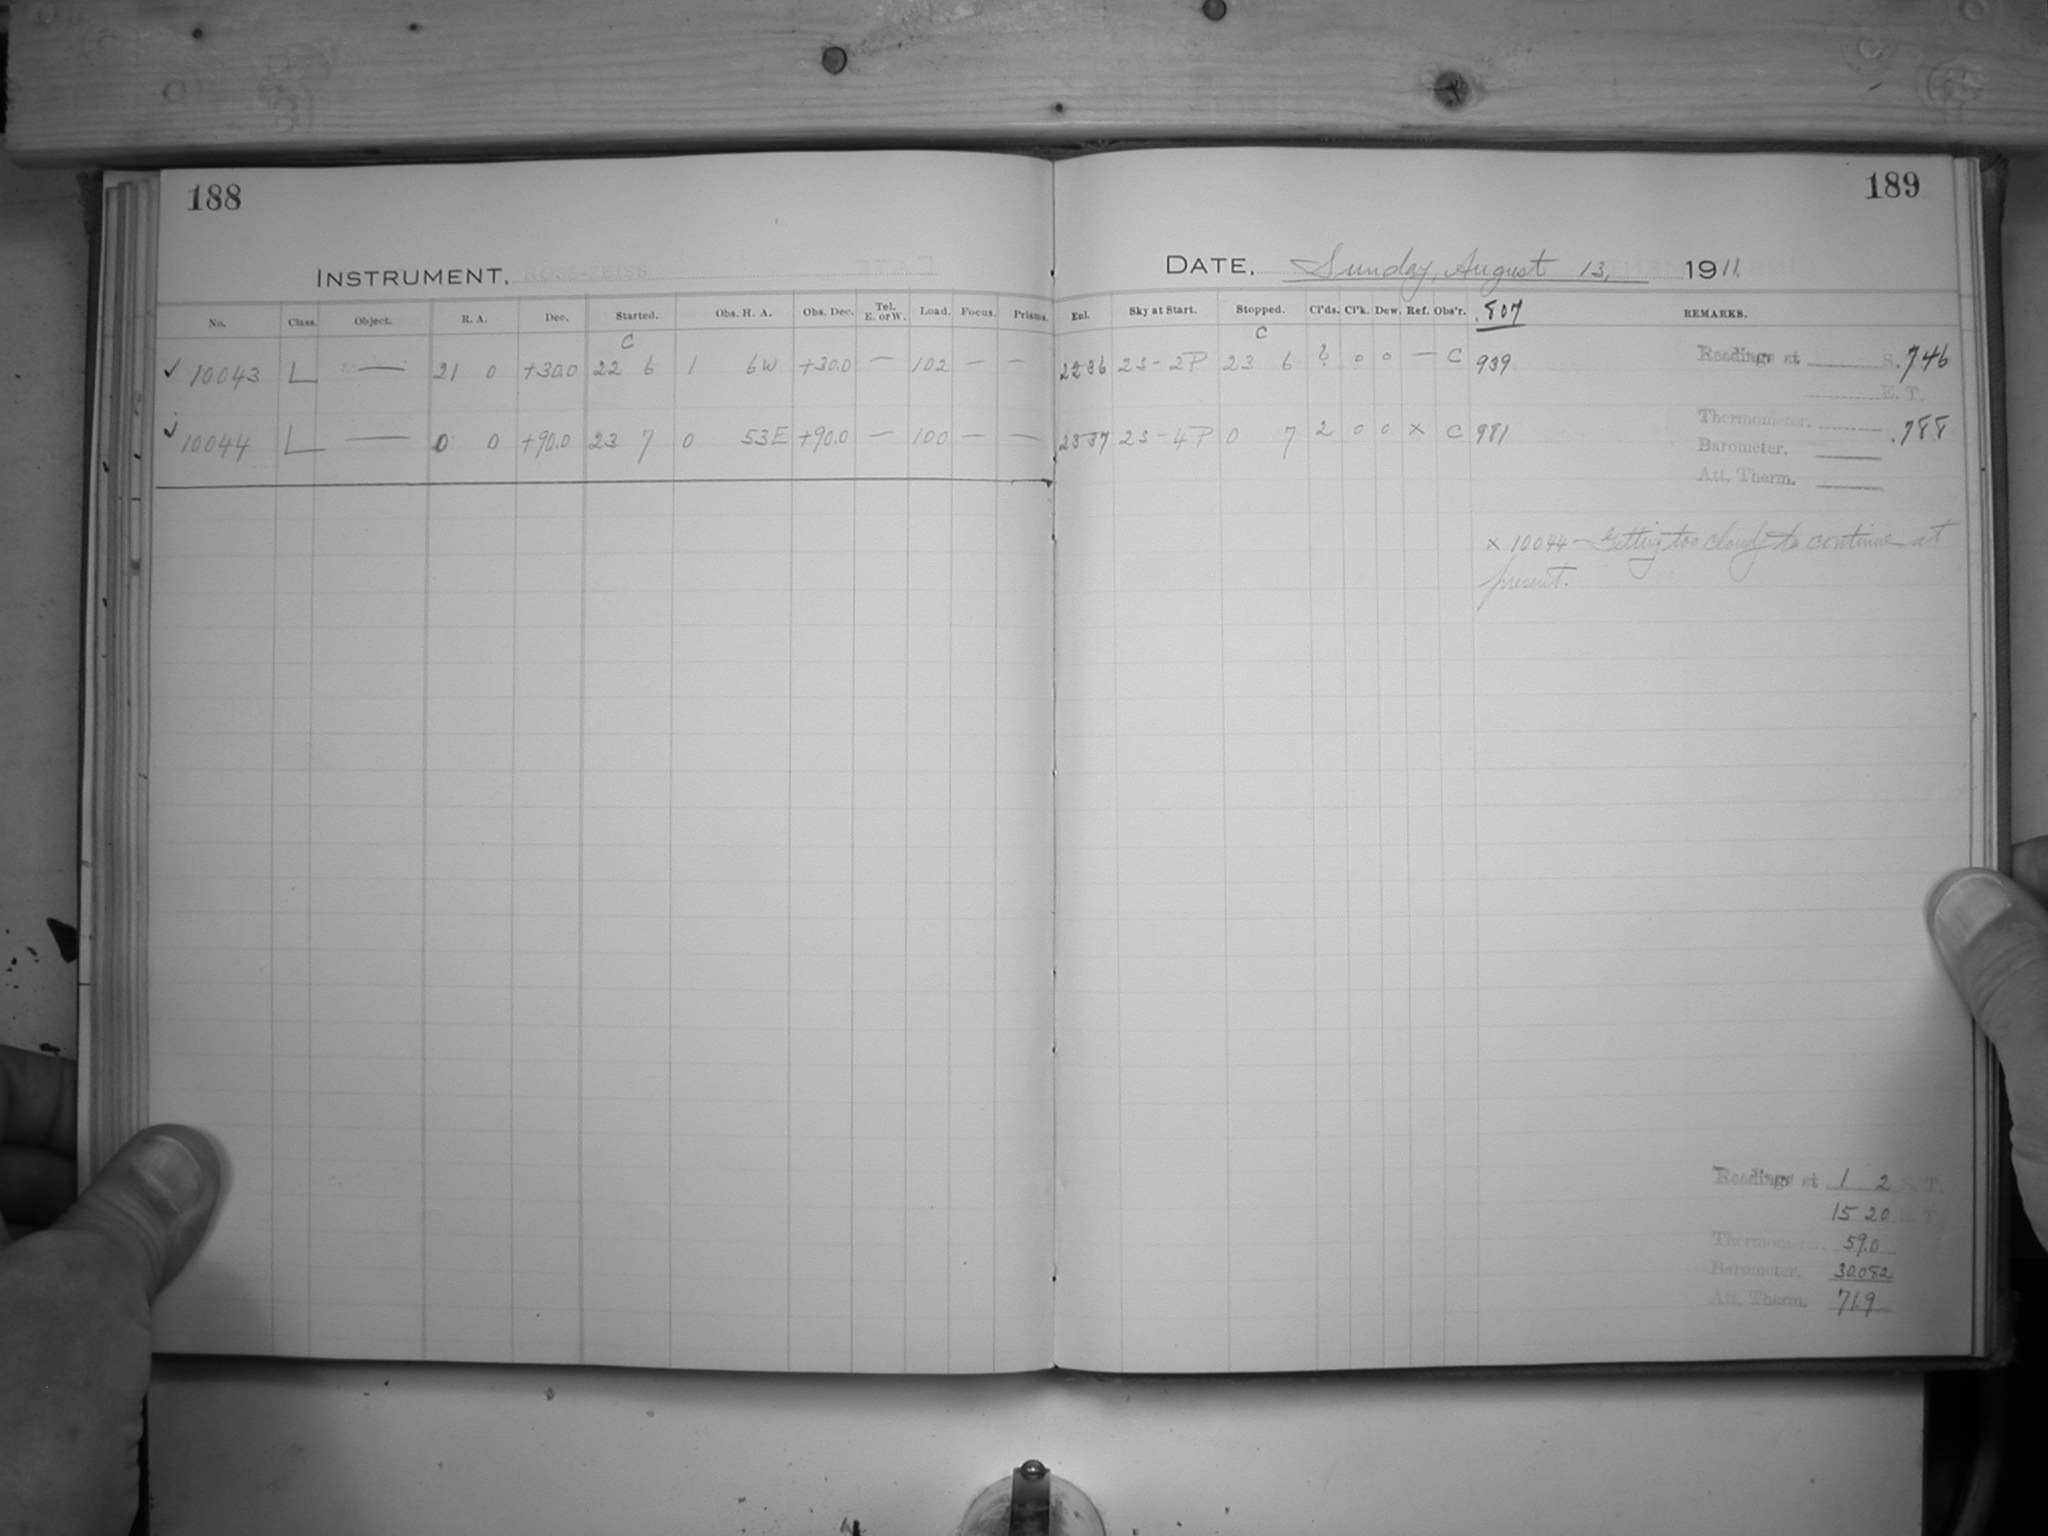 188
INSTRUMENT, ROSS-ZEISS
No. Class. Object. R. A. Dec. Started. Obs. H. A. Obs. Dec. Tel. E. or W. Load. Focus. Prisms.
C
✓ 10043 L — 21 0 +30.0 22 6 1 6W +30.0 — 102 — —
✓ 10044 L — 0 0 +90.0 23 7 0 53E +90.0 — 100 — —
189
DATE, Sunday, August 13, 1911.
Enl. Sky at Start. Stopped. Cl'ds. Cl'k. Dew. Ref. Obs'r. .807 REMARKS.
C
2236 2S-2P 23 6 2 0 0 — C 939
2337 2S-4P 0 7 2 0 0 x C 981
Readings at S. .746
E. T.
Thermometer. .788
Barometer.
Att. Therm.
x 10044 — Getting too cloudy to continue at
present.
Readings at 1 2 S. T.
15 20 E. T.
Thermometer. 59.0
Barometer. 30.082
Att. Therm. 71.9